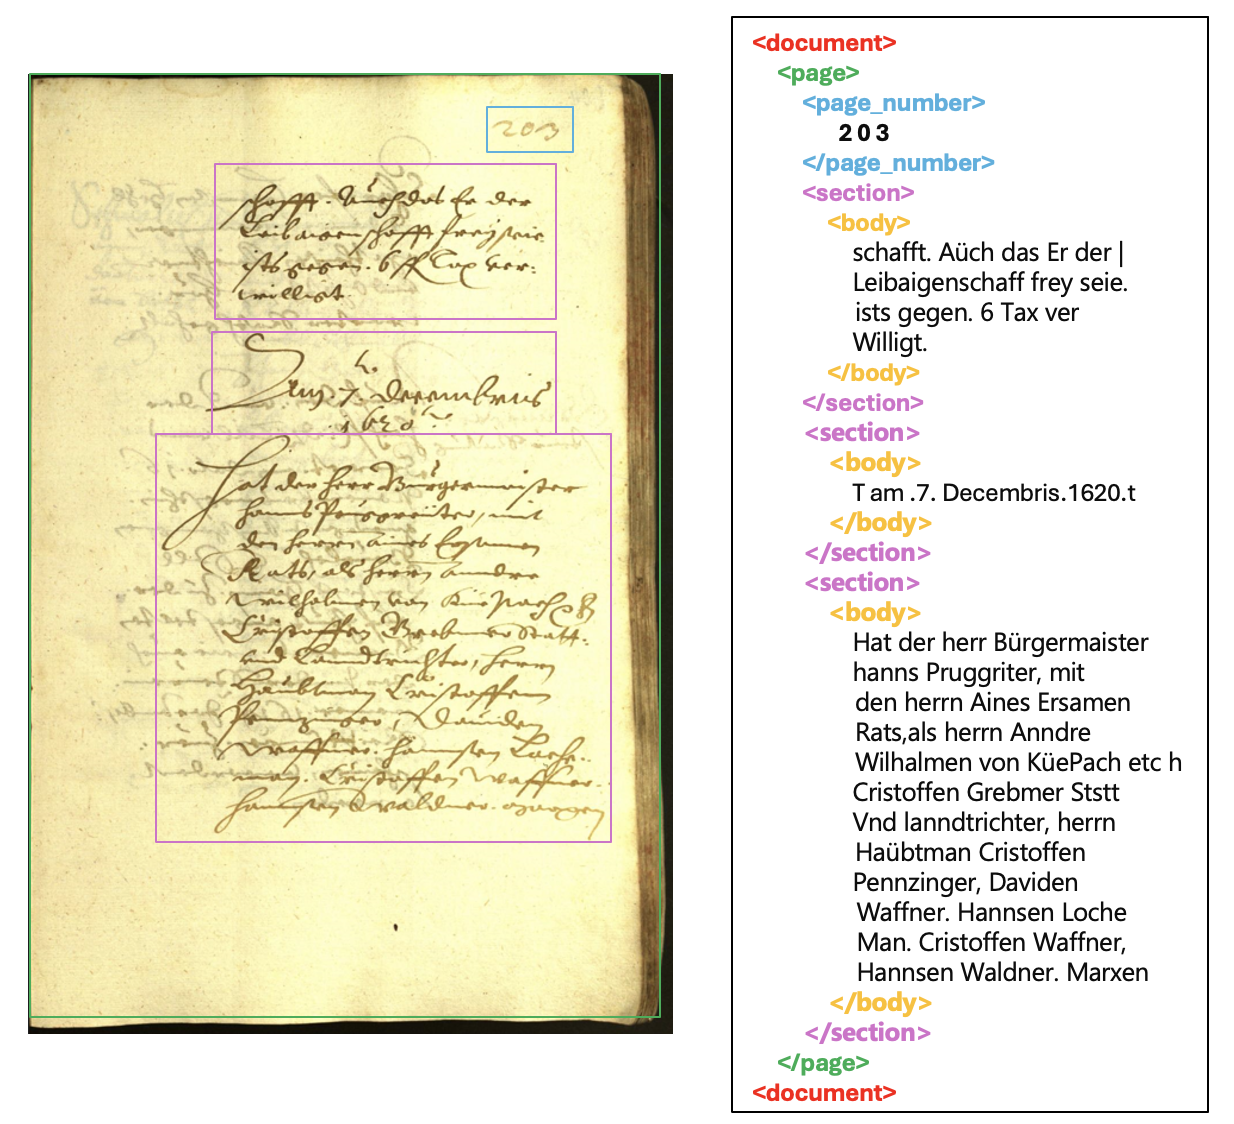 203
schafft. Aüch das Er der
Leibaigenschafft frey seie.
ists gegen. 6 Tax ver:
willigt.
Am .7. Decembris
1620
Hat der herr Bürgermaister
hanns Pruggreiter, mit
den herrn aines Ersamen
Rats, als herrn Anndre
Wilhalmen von KüePach
Cristoffen Grebmer Statt:
vnd Lanndtrichter, herrn
Haübtman Cristoffen
Pennzinger, Dauiden
Waffner. Hannsen Loche:
man. Cristoffen Waffner.
Hannsen Waldner. Marxen
<document>
<page>
<page_number>
2 0 3
</page_number>
<section>
<body>
schafft. Aüch das Er der |
Leibaigenschaff frey seie.
ists gegen. 6 Tax ver
Willigt.
</body>
</section>
<section>
<body>
T am .7. Decembris.1620.t
</body>
</section>
<section>
<body>
Hat der herr Bürgermaister
hanns Pruggriter, mit
den herrn Aines Ersamen
Rats,als herrn Anndre
Wilhalmen von KüePach etc h
Cristoffen Grebmer Ststt
Vnd lanndtrichter, herrn
Haübtman Cristoffen
Pennzinger, Daviden
Waffner. Hannsen Loche
Man. Cristoffen Waffner,
Hannsen Waldner. Marxen
</body>
</section>
</page>
<document>